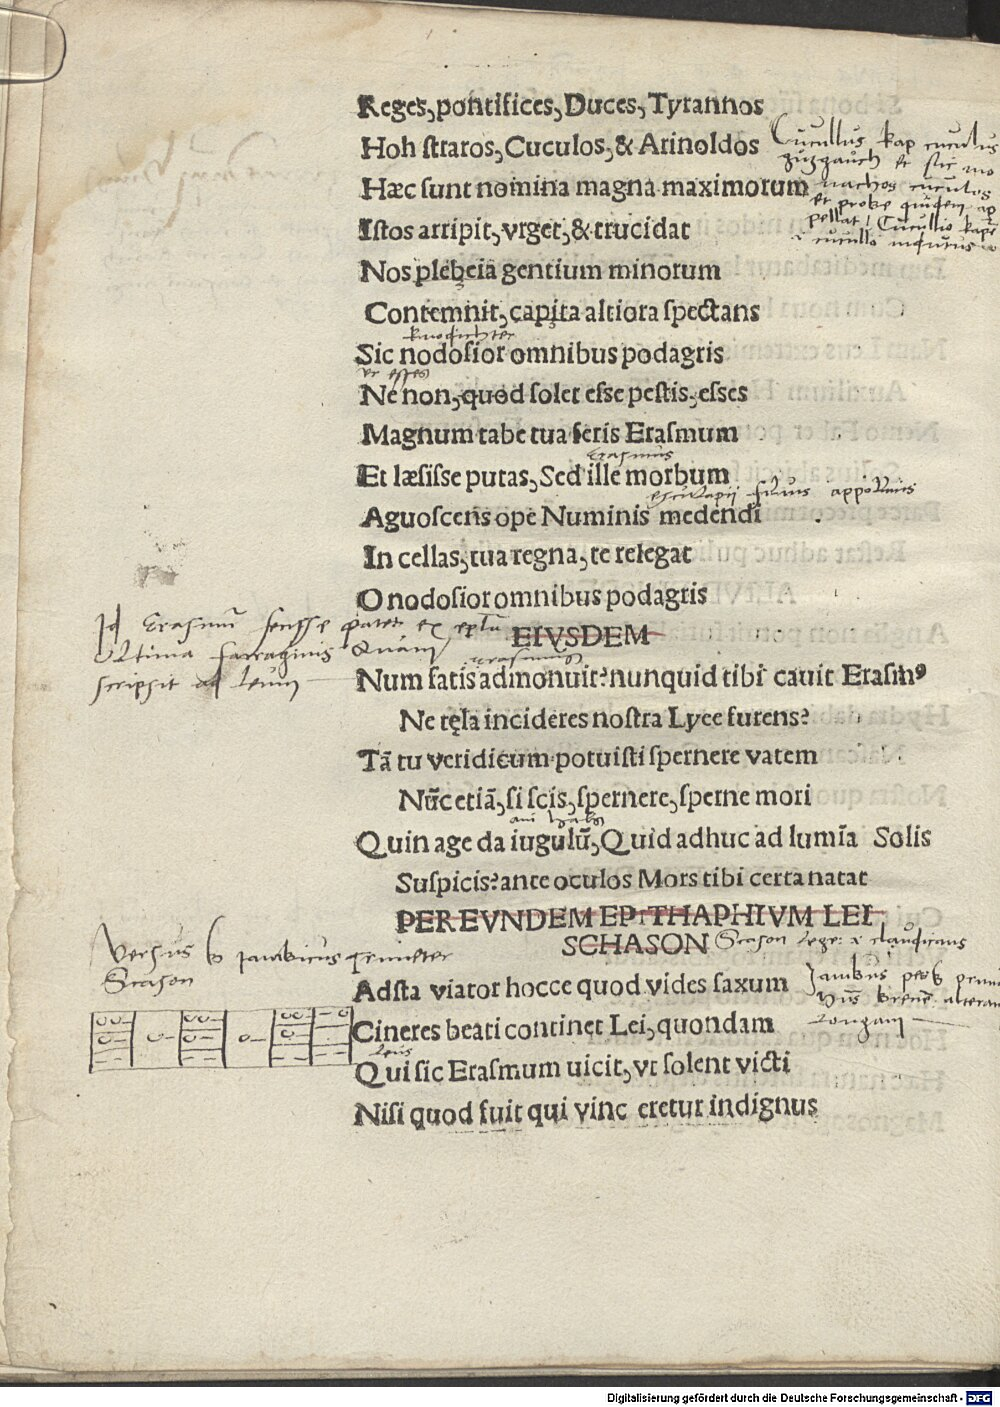 Reges, pontifices, Duces, Tyrannos
Hoh ſtraros, Cuculos, & Arinoldos
Hæc ſunt nomina magna maximorum
Iſtos arripit, vrget, & trucidat
Nos plebęia gentium minorum
Contemnit, capita altiora ſpectans
Sic nodoſior omnibus podagris
Ne non, quod ſolet eſſe peſtis, eſſes
Magnum tabe tua feris Eraſmum
Et læſiſſe putas, Sed ille morbum
Aguoſcens ope Numinis medendi
In cellas, tua regna, te relegat
O nodoſior omnibus podagris
EIVSDEM
Num ſatis admonuit? nunquid tibi cauit Eraſmꝰ
Ne tęla incideres noſtra Lyee furens?
Tā tu veridicum potuiſti ſpernere vatem
Nūc etiā, ſi ſcis, ſpernere, ſperne mori
Quin age da iugulū, Quid adhuc ad lumīa Solis
Suſpicis? ante oculos Mors tibi certa natat
PER EVNDEM EPITHAPHIVM LEI
SCHASON
Adſta viator hocce quod vides ſaxum
Cineres beati continet Lei, quondam
Qui ſic Eraſmum uicit, vt ſolent victi
Niſi quod fuit qui vinc eretur indignus
Cucullus kap cuculus
guzgauch et sic mo
nachos cuculos
et probe quidem ap
pellat
erasmus
Id Erasmū patet ex
Ultima farraginis
scripsit ad Leum
Versus iambicus trimeter
Scason
Scason claudicans
longam
Leus
Digitalisierung gefördert durch die Deutsche Forschungsgemeinschaft - DFG